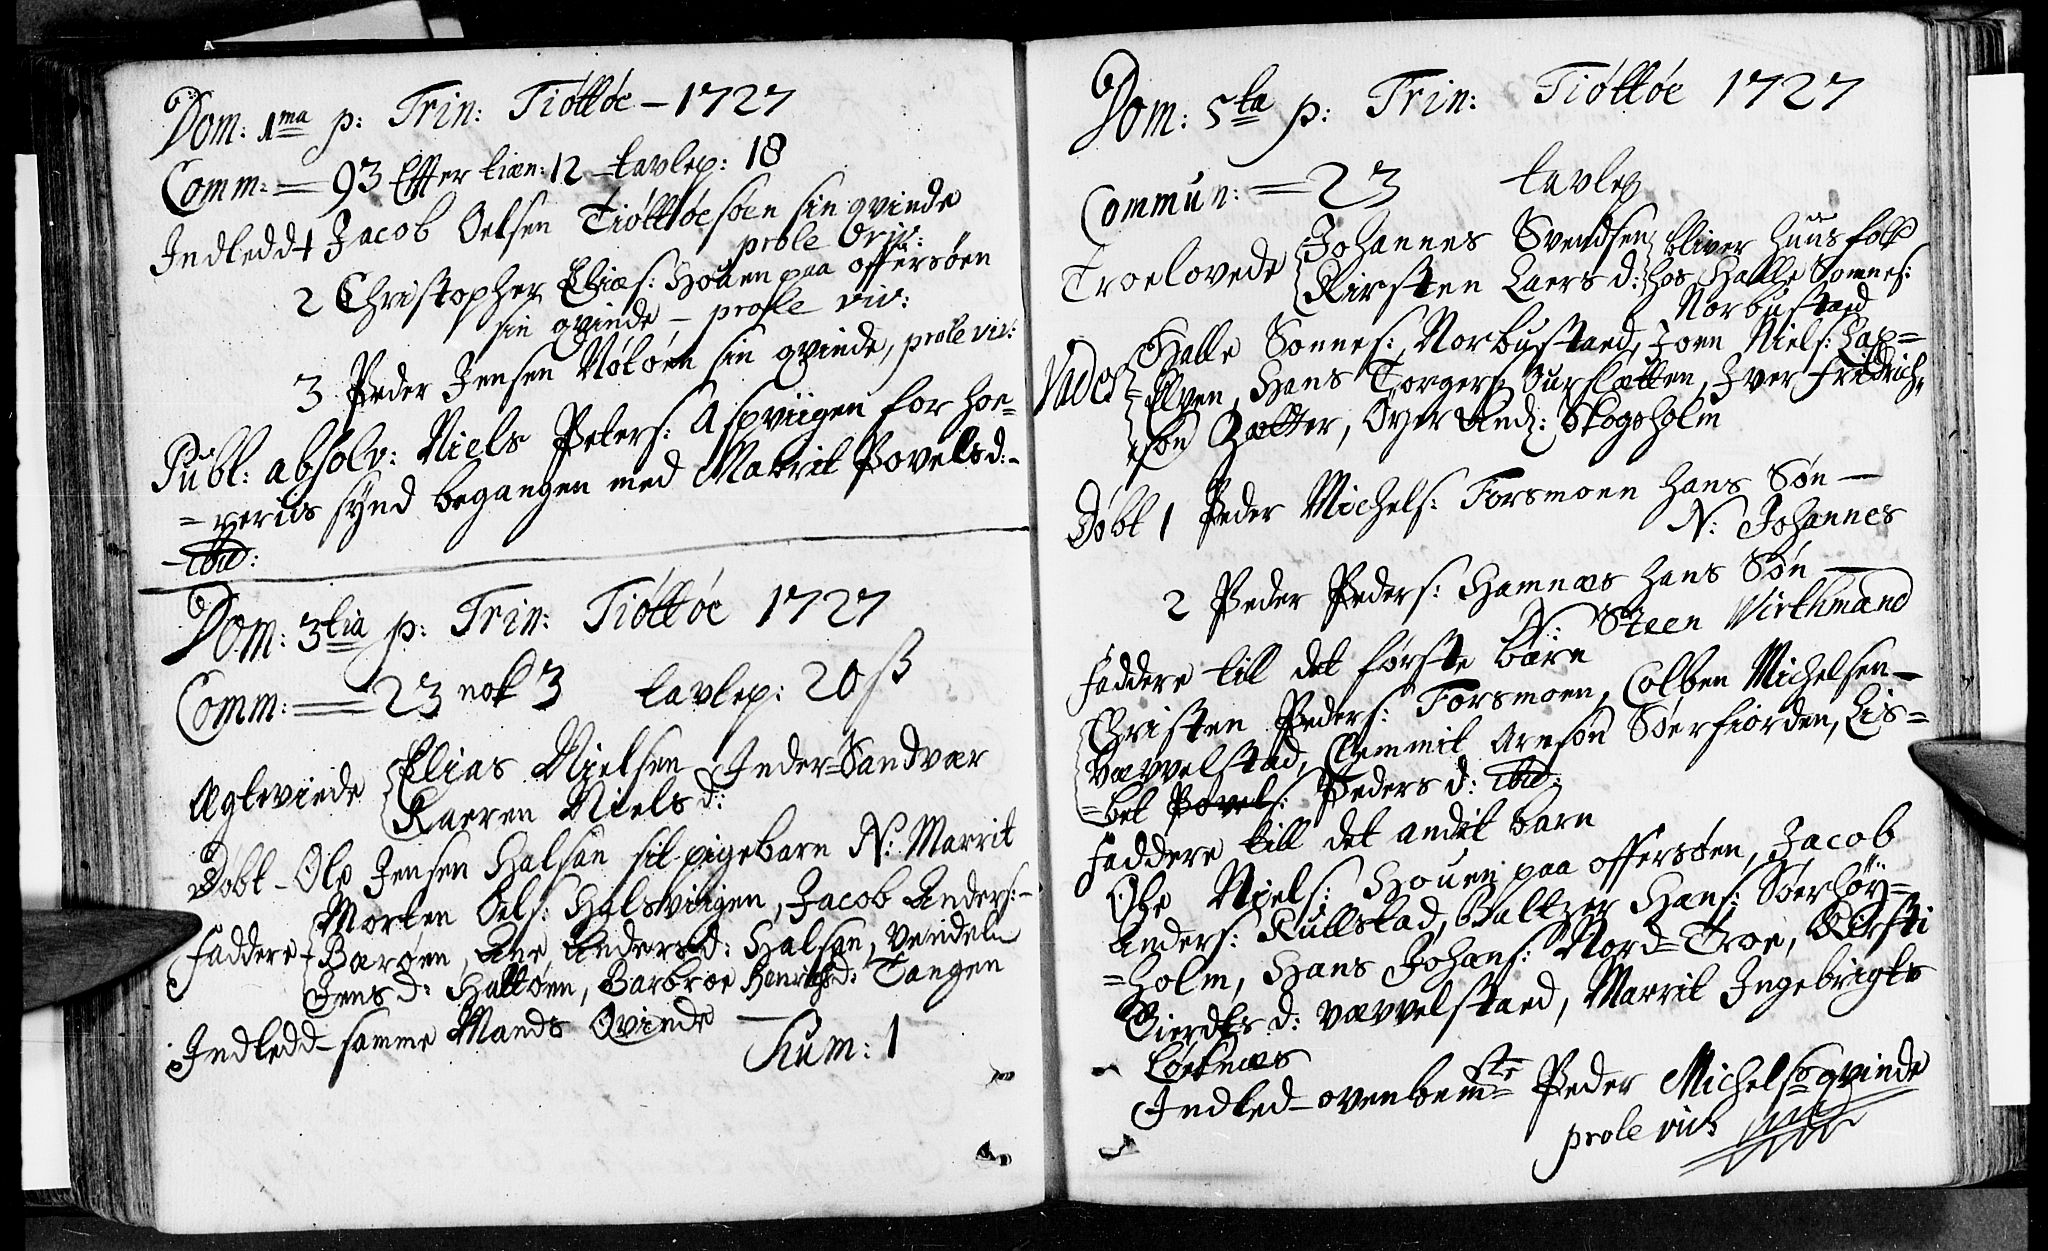 Dom: 1ma p: Trin: Tiøttøe – 1727
Comm: = 93 Effter tien: 12 – tavlep: 18
Indledd 1 Jacob Oelsen Tiøttøesøen sin qvinde
prole Oriv:
2 Christopher Eliæs: Houen paa offersøen
sin qvinde – prole viv:
3 Peder Jensen Røtøen sin qvinde, prole viv:
Publ: absolv: Niels Peters: Aspviigen for hoe=
=reriis synd begangen med Marrit Povelsd: –
– ibid:
Dom: 3tia p: Trin: Tiøttøe 1727
Comm: = 23 nok 3 tavlep: 20 ß
Ægteviede Elias Nielsen Inder=Sandvær
Kaeren Nielsd:
Døbt – Ole Jensen Halsan sit pigebarn N: Marrit
Morten Oels: Halsviigen, Jacob Anders: –
Faddere – Barøen, Ane Andersd: Halsan, Vendela
Jensd: Haltøen, Barbroe Henrichsd: Tangen
Indledd – samme Mands Qvinde –
Sum: 1
Dom: 5ta p: Trin: Tiøttøe 1727
Commun: = 23 tavlep
Troelovede Johannes Svendsen bliver huusfolk
Kirsten Laersd: hos Halle Sonnes:
Norbustaed
Vides Halle Sonnes: Norbustaed, Joen Niels: Lax=
=Elven, Hans Torgers: Burslætten, Iver Fredrich=
=søn Zætter, Oyer And: Skogsholm
Døbt 1 Peder Michels: Forsmoen hans Søn –
N: Johannes
2 Peder Peders: Hamnæs hans Søn –
N: Steen Wirthmand
Faddere till det første barn
Christen Peders: Forsmoen, Colben Michelsen –
Vævvelstad, Clemmit Arnsøn Søerfiorden, Lis=
=bet Povels: Pedersd: ibid:
Faddere till det andet barn
Ole Niels: Houen paa offersøen, Jacob
Anders: Kullstad, Baltzer Hans: Søerhöy=
=holm, Hans Johans: Nord=Troe, Kirsti
Sierdsd: vævvelstaed, Marrit Ingebrigts
Løeknæs
Indled – ovenbemte Peder Michelss qvinde
prole viv: